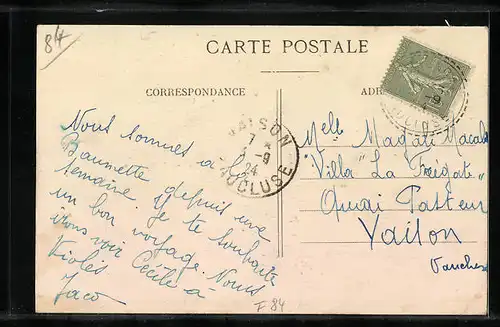 84
CARTE POSTALE
CORRESPONDANCE
ADR
VAISON
7 *
5 -9
24
VAUCLUSE
Nous sommes à la
Baumette depuis une
semaine. Je te souhaite
un bon voyage. Nous
irons voir Cécile à
Violès
Jaco
Melle Magali Macab
"Villa "La Frégate"
Quai Pasteur
Vaison
Vaucluse
F 84